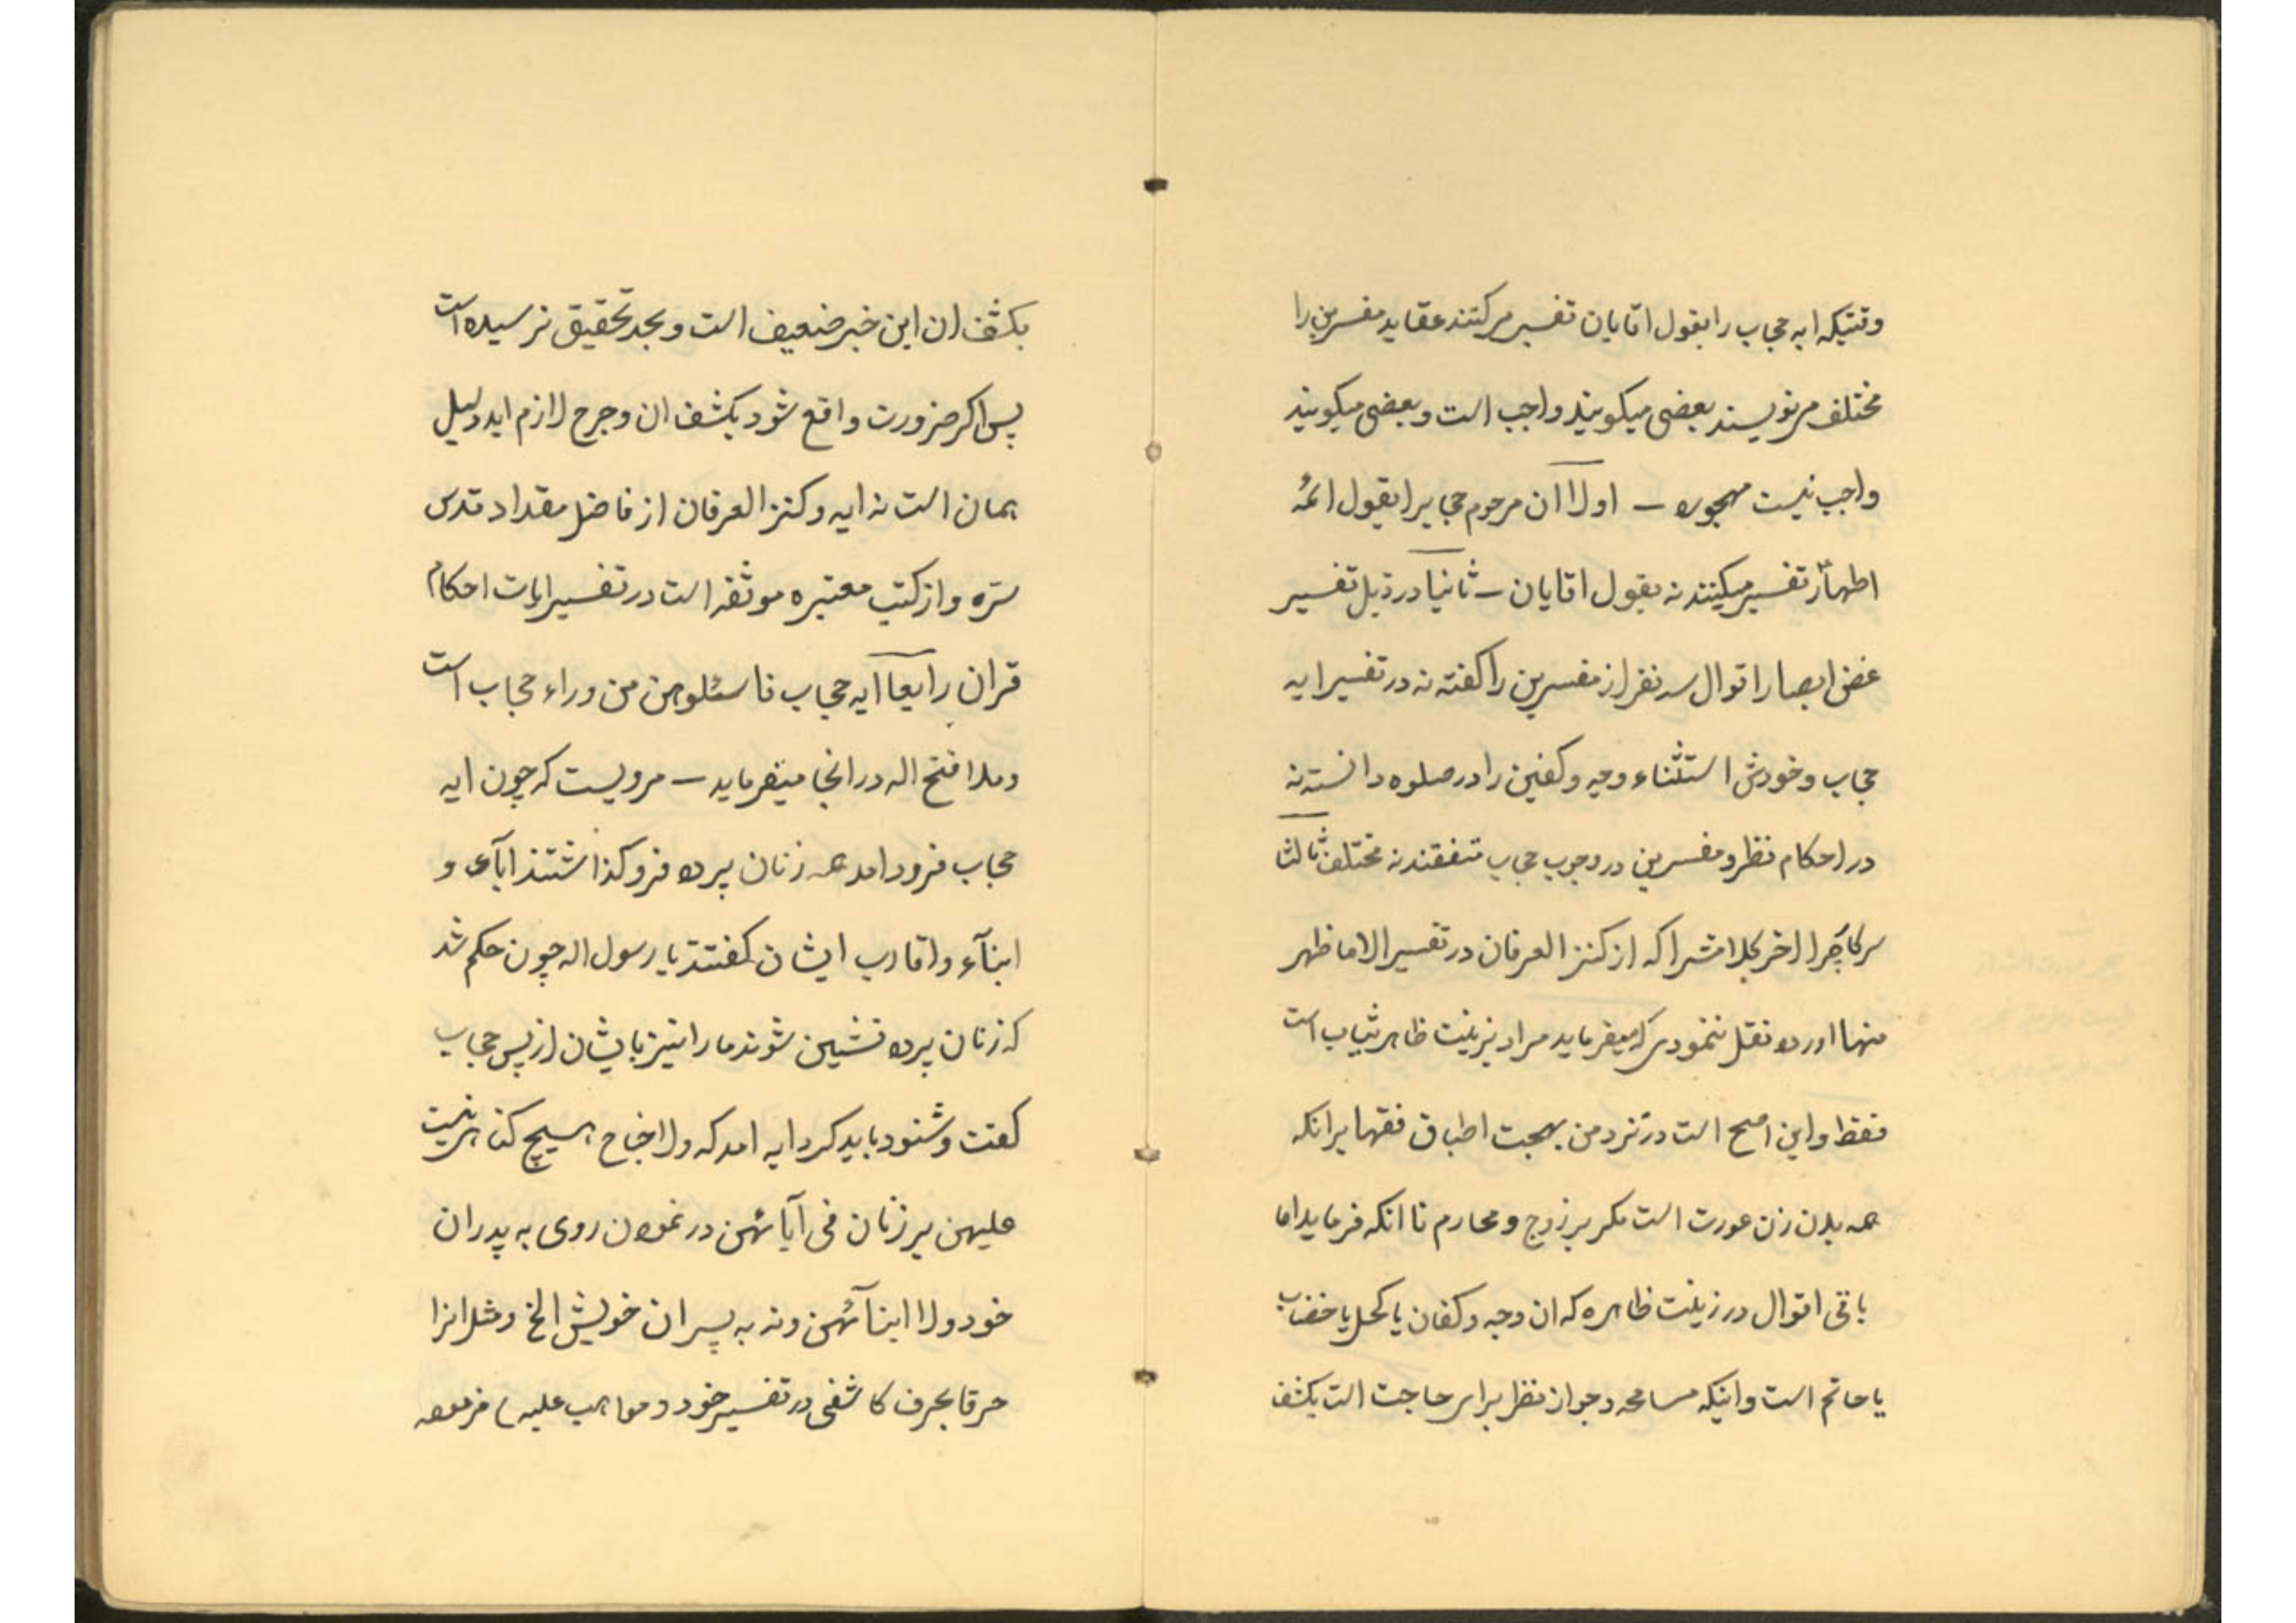 وقتیکه ایه حجاب را بقول اقایان تفسیر میرکنند عقاید مفسرین را
مختلف مینویسند بعضی میگویند واجب است و بعضی میگویند
واجب نیست مهجوره – اولا ان مرحوم حجاب را بقول ائمه
اطهار تفسیر میکنند نه بقول اقایان – ثانیا در ذیل تفسیر
غض ابصار اقوال سه نفر از مفسرین را گفته نه در تفسیر ایه
حجاب و خودش استثناء وجه و کفین را در صلوه دانسته نه
در احکام نظر و مفسرین در وجوب حجاب متفقند نه مختلف ثالثا
سرکار چرا اخر کلامش را که از کنز العرفان در تفسیر الا ما ظهر
منها اورده نقل ننمودی که میفرماید مراد بزینت ظاهر ثیاب است
فقط و این اصح است در نزد من بجهت اطباق فقها برانکه
همه بدن زن عورت است مکر بر زوج و محارم تا انکه فرماید اما
باقی اقوال در زینت ظاهره که ان وجه و کفان یا کحل یا خضاب
یا خاتم است و اینکه مسامحه و جواز نظر برای حاجت است بکشف
بکشف ان این خبر ضعیف است و بحد تحقیق نرسیده است
پس اکر ضرورت واقع شود بکشف ان و حرج لازم اید دلیل
همان است نه ایه و کنز العرفان از فاضل مقداد قدس
سره و از کتب معتبره موثقه است در تفسیر ایات احکام
قران رابعا آیه حجاب فاسئلوهن من وراء حجاب است
و ملا فتح اله در انجا میفرماید – مرویست که چون ایه
حجاب فرود امد همه زنان پرده فروکذاشتند اباء و
ابنآء و اقارب ایشان کفتند یا رسول اله چون حکم شد
که زنان پرده نشین شوند ما را نیز بایشان از پس حجاب
کفت و شنود باید کرد ایه امد که ولا جناح هیچ کناهی نیست
علیهن بر زنان فی آبائهن در نمودن روی به پدران
خود ولا ابنآئهن و نه به پسران خویش الخ و مثل انرا
حرفا بحرف کاشفی در تفسیر خود مواهب علیه